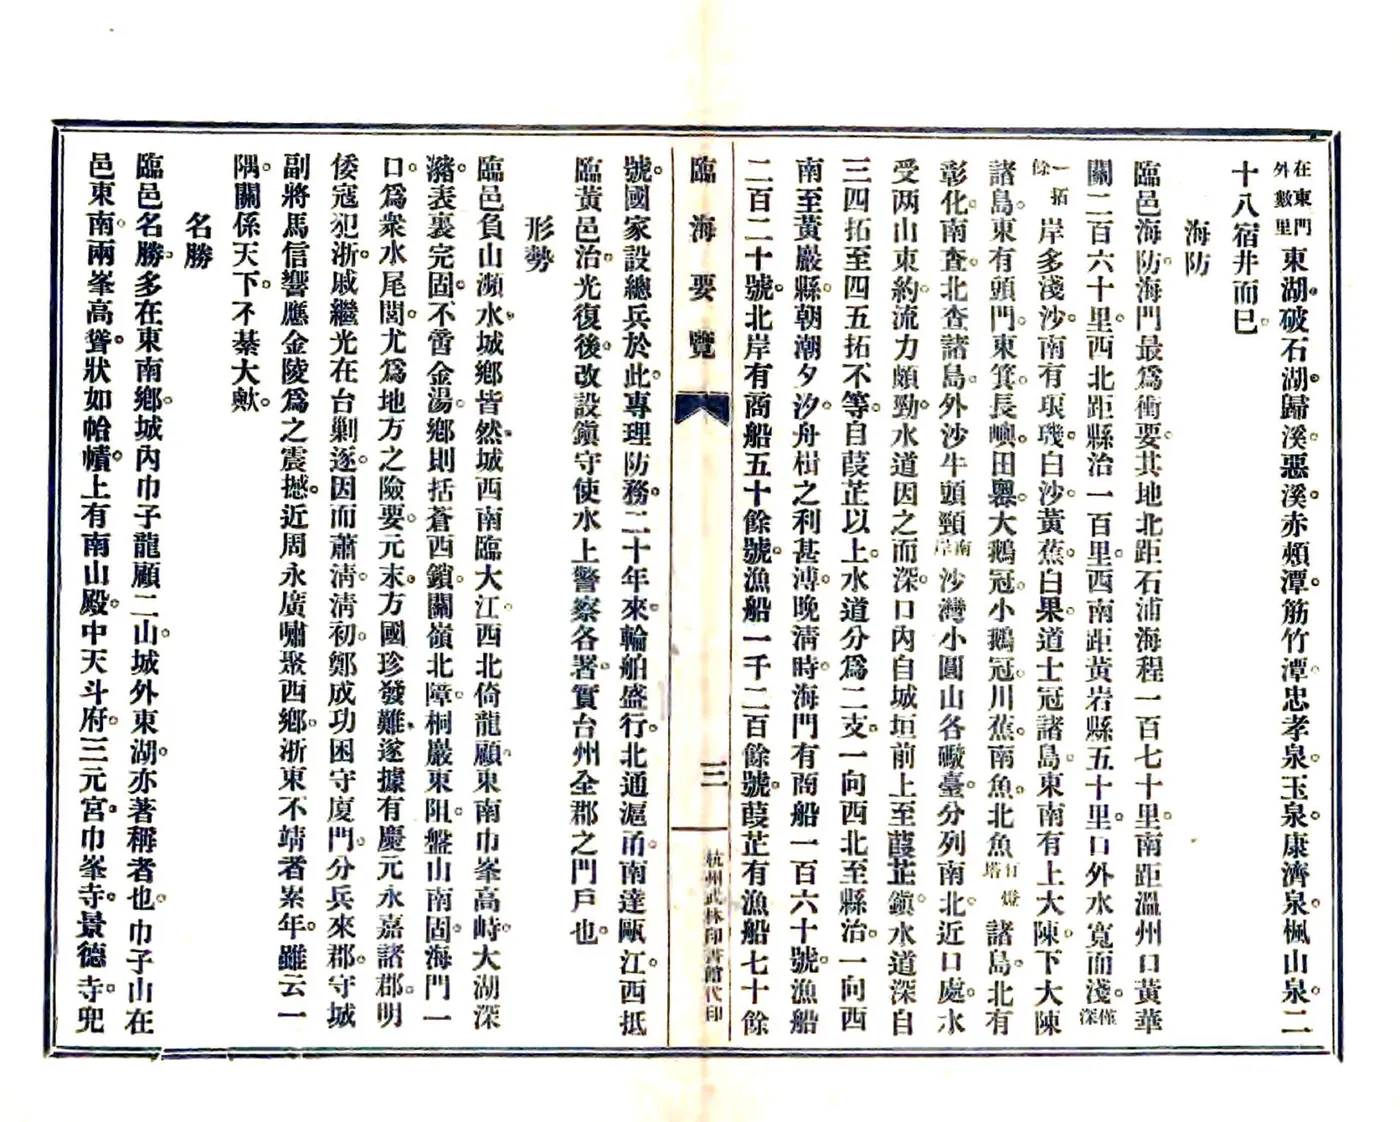 在東門外數里東湖。破石湖。歸溪。惡溪。赤頰潭。筋竹潭。忠孝泉。玉泉。康濟泉。楓山泉。二
十八宿井而已。
海防
臨邑海防。海門最爲衝要。其地北距石浦海程一百七十里。南距溫州口黃華
關二百六十里。西北距縣治一百里。西南距黃岩縣五十里。口外水寬而淺。僅深
一拓餘岸多淺沙。南有琅璣。白沙。黃蕉。白果。道士冠諸島。東南有上大陳。下大陳
諸島。東有頭門。東箕。長嶼。田嶴。大鵝冠。小鵝冠。川蕉。南魚。北魚有燈塔諸島。北有
彰化。南查。北查諸島。外沙牛頭頸南岸沙灣小圓山各礮臺。分列南北。近口處。水
受两山東約。流力頗勁。水道因之而深。口內自城垣前上至葭芷。鎮水道深自
三四拓至四五拓不等。自葭芷以上。水道分爲二支。一向西北至縣治。一向西
南至黃巖縣。朝潮夕汐。舟楫之利甚溥。晚淸時。海門有商船一百六十號。漁船
二百二十號。北岸有商船五十餘號。漁船一千二百餘號。葭芷有漁船七十餘
臨海要覽
三
杭州武林印書館代印
號。國家設總兵於此。專理防務。二十年來。輪舶盛行。北通滬甬。南達甌江。西抵
臨黃邑治。光復後。改設鎮守使水上警察各署。實台州全郡之門戶也。
形勢
臨邑負山瀕水。城鄉皆然。城西南臨大江。西北倚龍顧。東南巾峯高峙。大湖深
瀦。表裏完固。不啻金湯。鄉則括蒼西鎖。關嶺北障。桐巖東阻。盤山南固。海門一
口。爲衆水尾閭。尤爲地方之險要。元末。方國珍發難。遂據有慶元永嘉諸郡。明
倭寇犯浙。戚繼光在台剿逐。因而蕭淸。淸初。鄭成功困守廈門。分兵來郡。守城
副將馬信響應。金陵爲之震撼。近周永廣嘯聚西鄉。浙東不靖者累年。雖云一
隅。關係天下。不綦大歟。
名勝
臨邑名勝。多在東南鄉。城內巾子龍顧二山。城外東湖。亦著稱者也。巾子山在
邑東南。兩峯高聳。狀如帢幘。上有南山殿。中天斗府。三元宮。巾峯寺。景德寺。兜